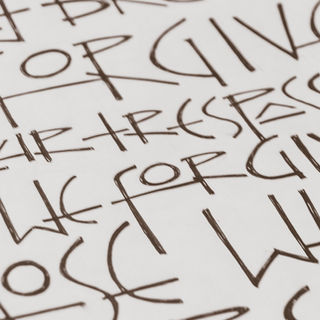 FORGIV
UR TRESPASS
WE FORGIV
OSE WH